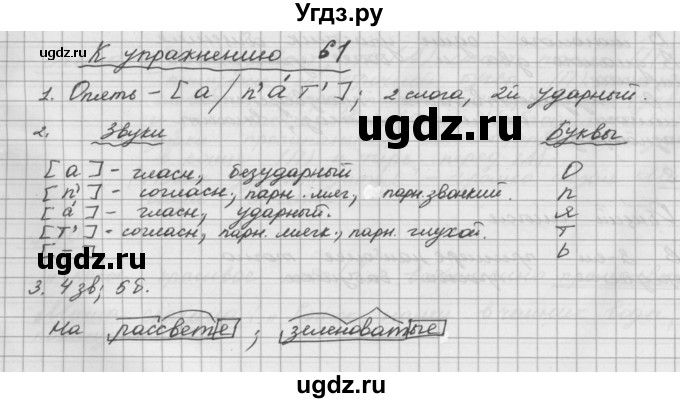 Угдз.ру
К упражнению 61
1. Опять – [а/п'а́т']; 2 слога, 2й ударный.
2. Звуки Буквы
[а] – гласн, безударный О
[п'] – согласн., парн. мяг, парн. звонкий. п
[а́] – гласн, ударный. я
[т'] – согласн, парн. мягк., парн. глухой. т
[–] ь
3. 4 зв; 5 б.
на рассвете; зеленоватые
ugdz.ru
ugdz.ru
ugdz.ru
ugdz.ru
ugdz.ru
ugdz.ru